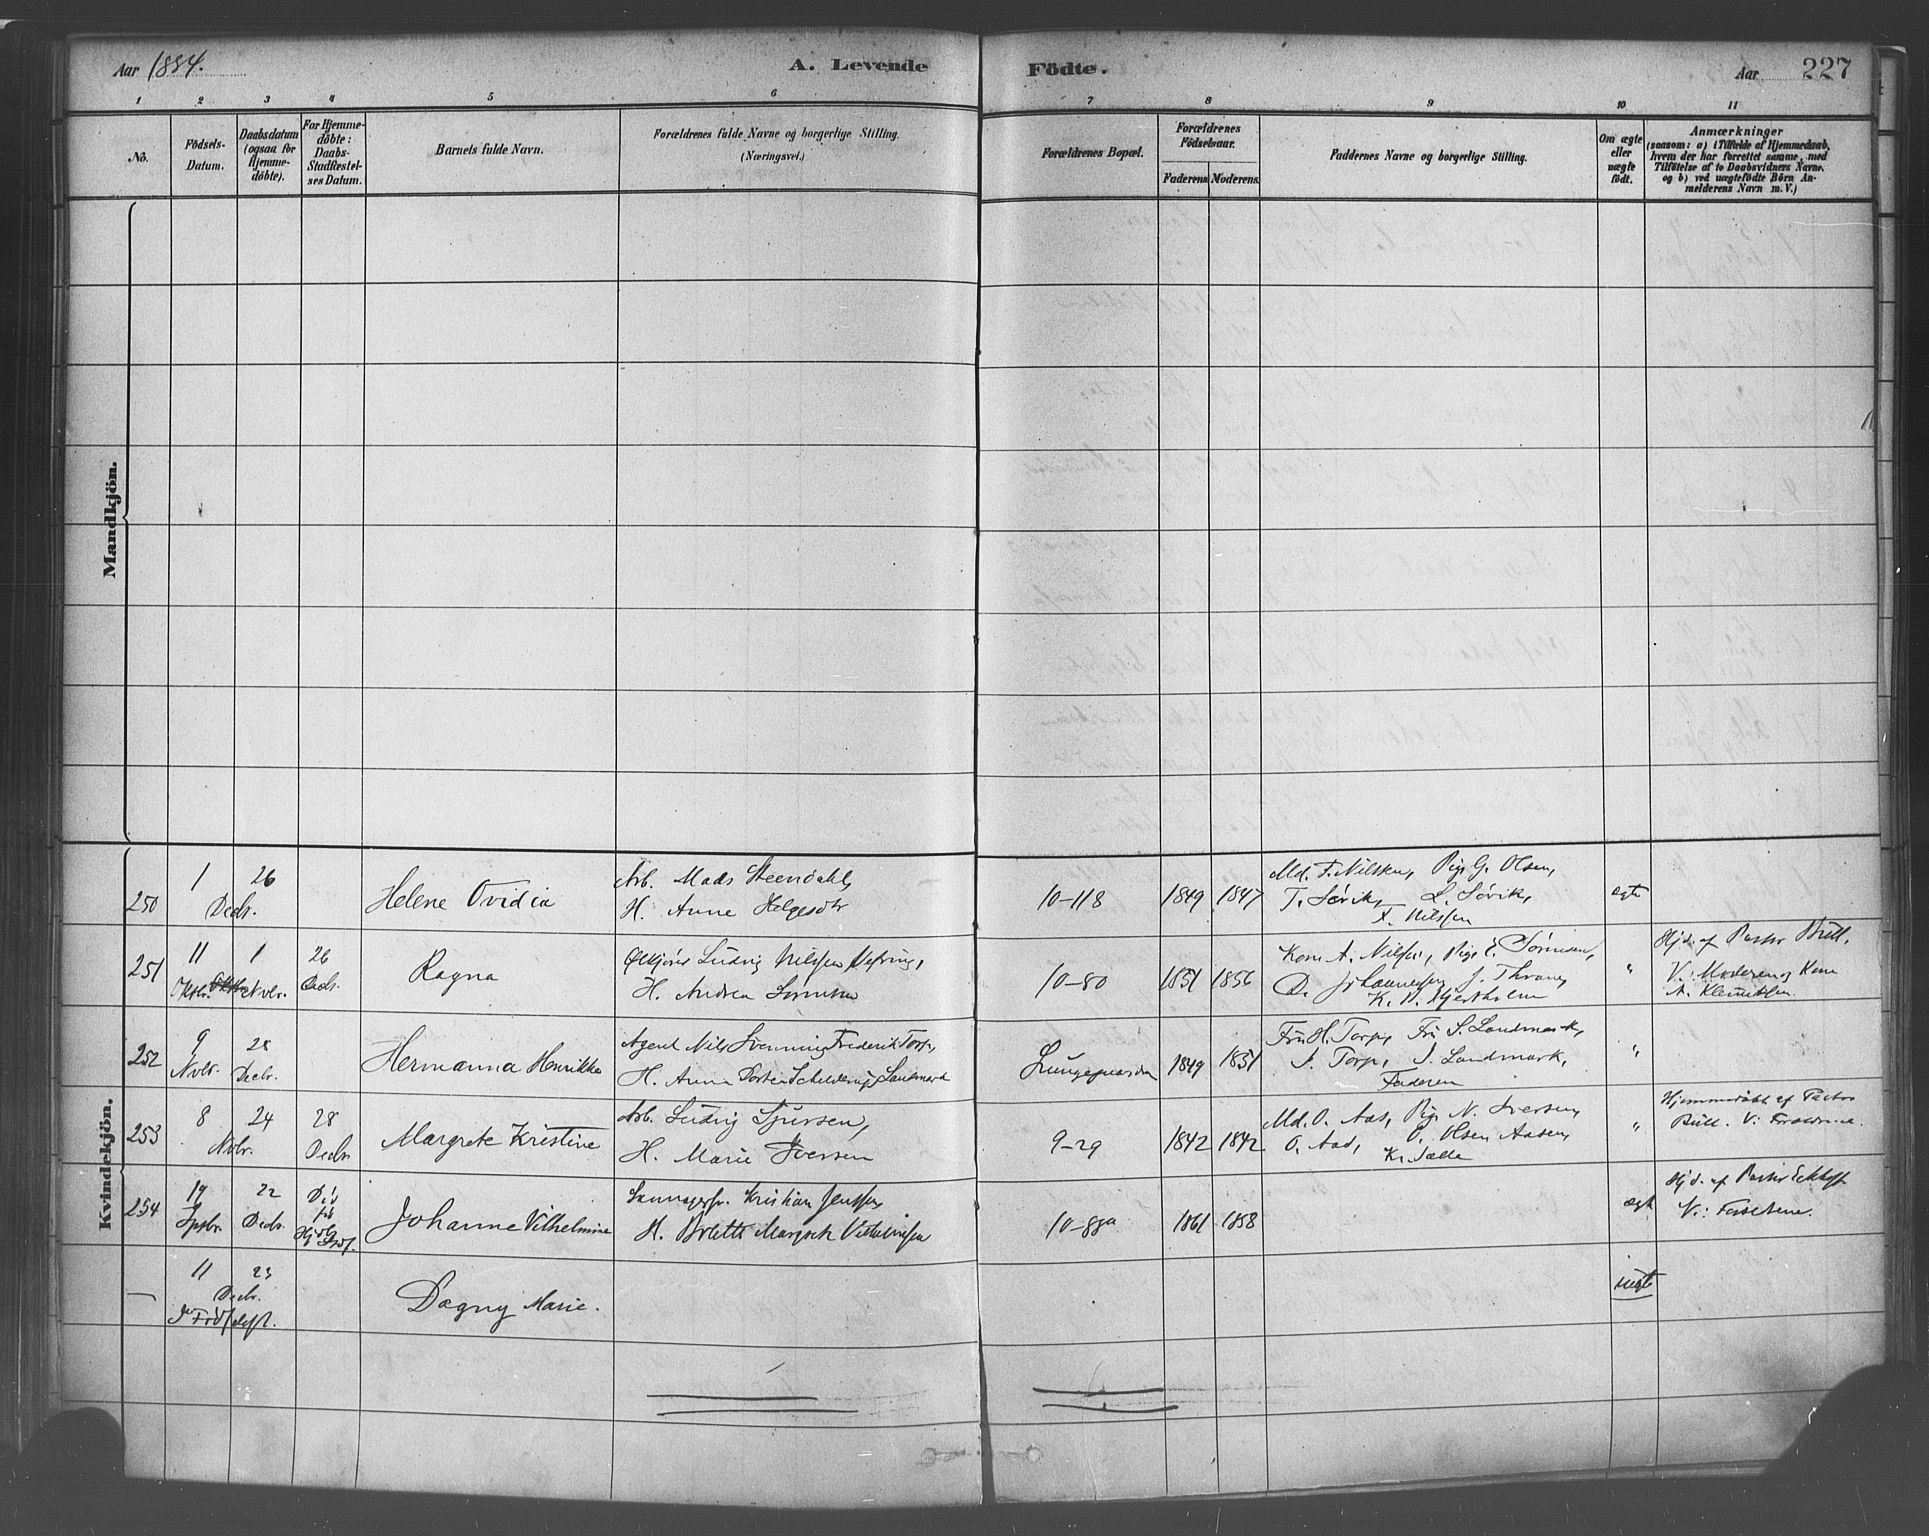 Aar 1884.
A. Levende Födte.
Aar 227
1 2 3 4 5 6 7 8 9 10 11
No.
Födsels-Datum.
Daabsdatum (ogsaa for Hjemme-döbte).
For Hjemme-döbte: Daabs-Stadfæstel-ses Datum.
Barnets fulde Navn.
Forældrenes fulde Navne og borgerlige Stilling. (Næringsvei.)
Forældrenes Bopæl.
Forældrenes Födselsaar.
Faderens. Moderens.
Faddernes Navne og borgerlige Stilling.
Om ægte eller uægte födt.
Anmærkninger
(saasom: a) i Tilfælde af Hjemmedaab, hvem der har forrettet samme, med Tilföielse af to Daabsvidners Navne, og b) ved uægtefödte Börn Anmelderens Navn m. V.)
Mandkjön.
Kvindekjön.
250 1 26 Decbr.
Helene Ovidia
Arb. Mads Steendahl,
H. Anne Helgesdtr
10-118 1849 1847
Md. F. Nilsen, Pige G. Olsen,
T. Sørvik, L. Sørvik,
A. Nilssen
ægte
251 11 Oktbr. 1 Novbr. 26 Decbr.
Ragna
Ludvig Nilssen
H. Andrea Sørensen
10-80 1851 1856
Kone A. Nilsen, Pige E. Sørensen,
D. Johannessen, J. Thrane,
K. H. Hjertholm
"
Hjd. af Pastor Bull.
V.: Moderen og Kone
A. Klementsen.
252 9 Novbr. 28 Decbr.
Hermanna Henrikke
Agent Nils Svenning Frederik Torp,
H. Anna Schelderup Landmark
Lungegaarden 1849 1851
Fru H. Torp, Fru S. Landmark,
A. Torp, J. Landmark,
Faderen
"
253 8 24 Novbr. 28 Decbr.
Margrete Kristine
Arb. Ludvig Sjursen,
H. Marie Iversen
9-29 1842 1842
Md. O. Aas, Pige N. Iversen,
O. Aad, O. Olsen Aasen,
Kr. Sælle
"
Hjemmedøbt af Pastor
Bull. V: Forældrene.
254 19 Septbr. 22 Decbr.
Johanne Vilhelmine
Kristian Jenssen
H. Bolette Margrete Vilhelmsen
10-88a 1861 1858
ægte
Hjd. af Pastor Eckhoff
V.: Forældrene.
— 11 23 Decbr.
Dagny Marie.
uægte